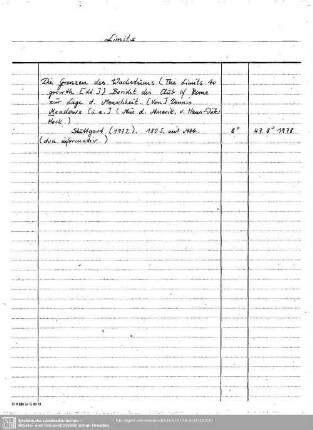 Limits
Die Grenzen des Wachstums (The Limits to
growth [dt.]) Bericht des Club of Rome
zur Lage d. Menschheit. [Von] Dennis
Meadows [u.a.] (Aus d. Amerik. v. Hans-Dieter
Heck.)
Stuttgart (1972). 180 S. mit Abb. 8° 43. 8° 1978
(dva informativ.)
Sächsische Landesbibliothek -
Staats- und Universitätsbibliothek Dresden